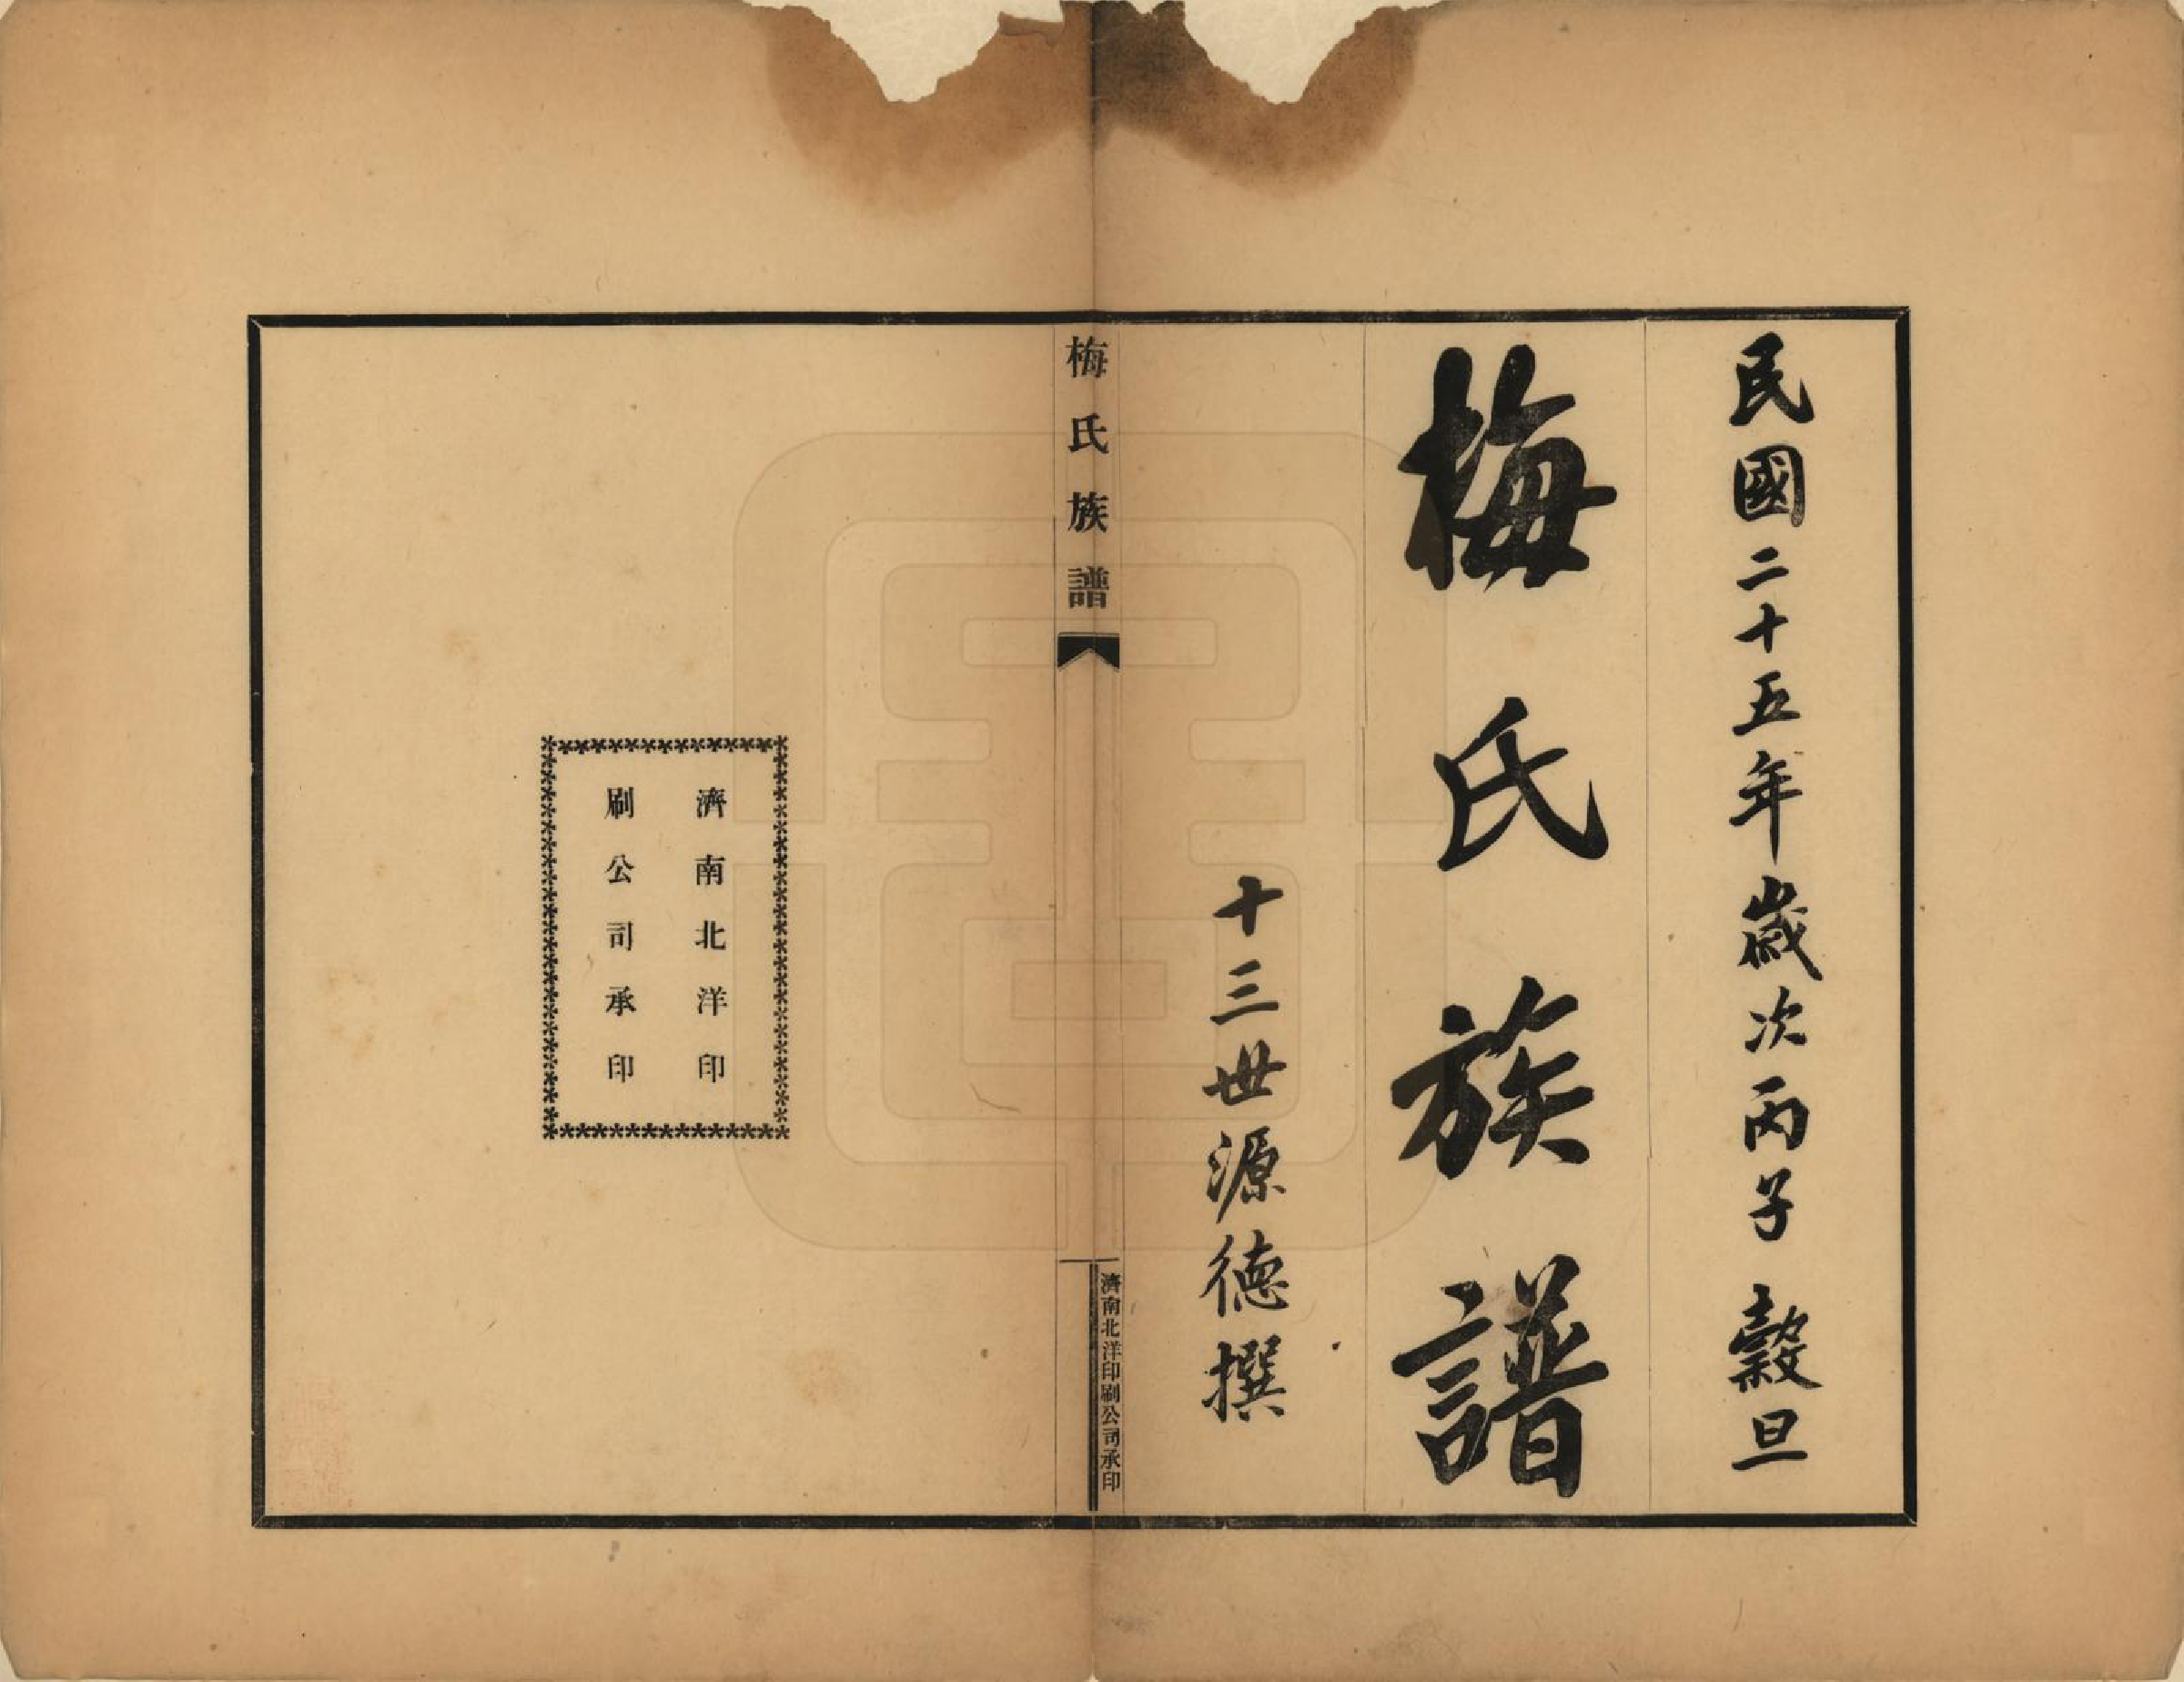 民國二十五年歲次丙子 穀旦
梅氏族譜
十三世源德撰
梅氏族譜
濟南北洋印刷公司承印
濟南北洋印
刷公司承印